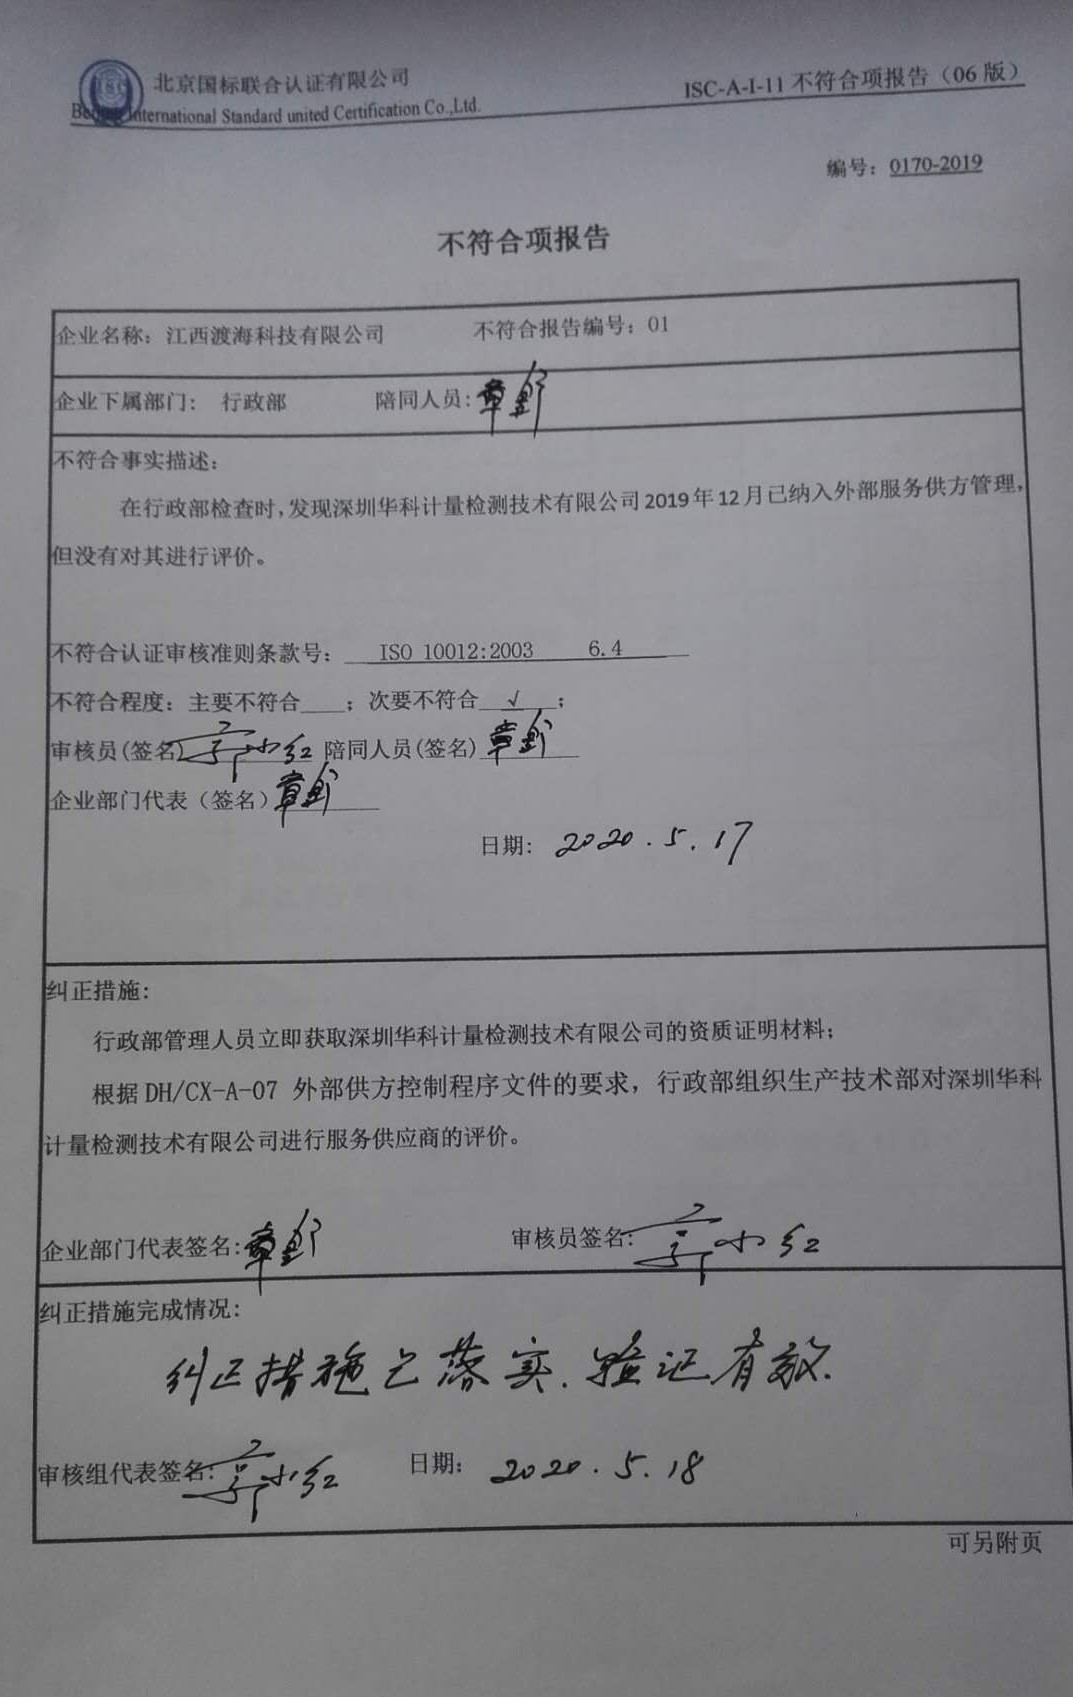 北京国标联合认证有限公司
ISC-A-I-11 不符合项报告（06 版）
International Standard united Certification Co.,Ltd.
编号：0170-2019
不符合项报告
企业名称：江西渡海科技有限公司 不符合报告编号：01
企业下属部门： 行政部 陪同人员：
不符合事实描述：
在行政部检查时，发现深圳华科计量检测技术有限公司2019年12月已纳入外部服务供方管理，
但没有对其进行评价。
不符合认证审核准则条款号： ISO 10012:2003 6.4
不符合程度：主要不符合____；次要不符合 √ ；
审核员(签名) 郭小红 陪同人员(签名)
企业部门代表（签名）
日期: 2020.5.17
纠正措施：
行政部管理人员立即获取深圳华科计量检测技术有限公司的资质证明材料；
根据 DH/CX-A-07 外部供方控制程序文件的要求，行政部组织生产技术部对深圳华科
计量检测技术有限公司进行服务供应商的评价。
企业部门代表签名: 审核员签名: 郭小红
纠正措施完成情况：
纠正措施已落实.验证有效.
审核组代表签名: 郭小红 日期: 2020.5.18
可另附页